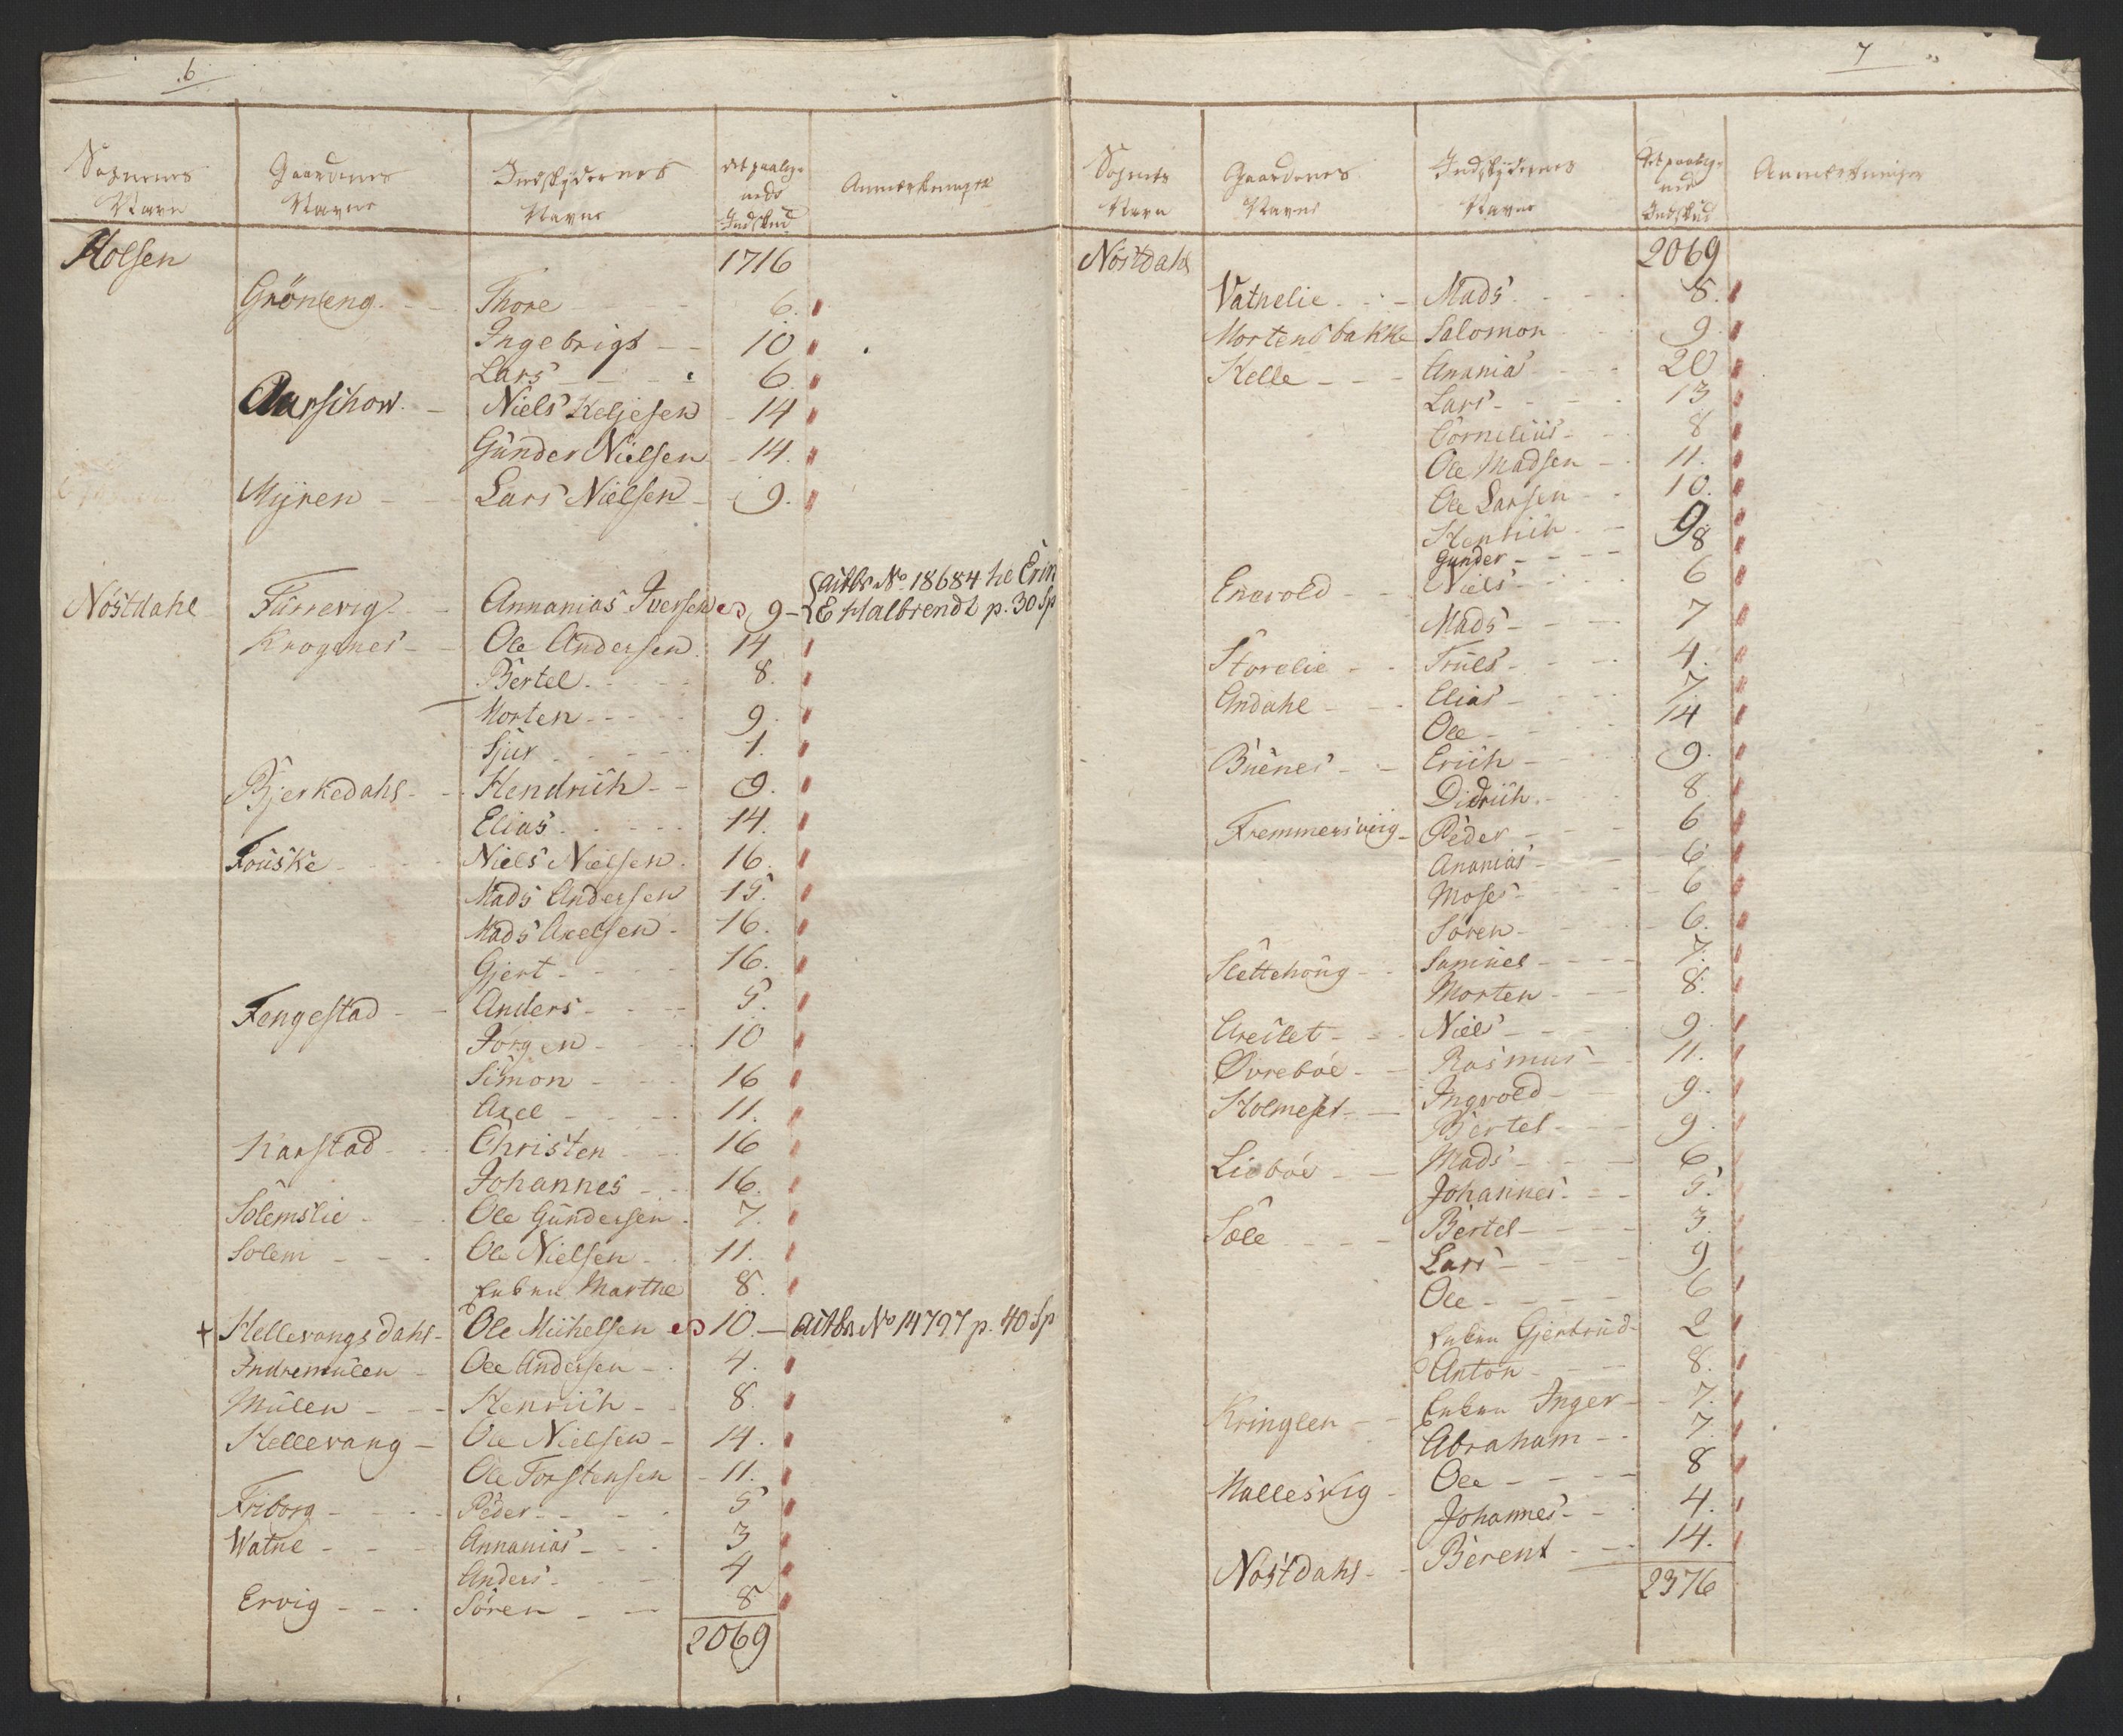 6
Sognenes Navn	Gaardenes Navne	Indskydernes Navne	det paalignede Indskud	Anmærkninger
Holsen	1716
Gröneng	Thore	6.
Ingebrigt	10
Lars	6
Aarschow	Niels Keljesen	14
Gunder Nielsen	14.
Myren	Lars Nielsen	9.
Nöstdahl	Furrevig	Annanias Iversen	9	aitbr No 18684 he Erin E Halbrendt p. 30 Sp
Krogenes	Ole Andersen	14
Bertel	8.
Morten	9.
Sjur	1.
Bjerkedahl	Hendrich	9.
Elias	14.
Fouske	Niels Nielsen	16.
Mads Andersen	15.
Mads Axelsen	16.
Gjert	16.
Fengestad	Anders	5.
Jörgen	10
Simon	16
Axel	11.
Karstad	Christen	16
Johannes	16.
Solemslie	Ole Gundersen	7.
Solem	Ole Nielsen	11.
Enken Marthe	8.
+ Hellevangsdahl	Ole Michelsen	10.	aitbr No 14797 p. 40 Sp
Indremulen	Ole Andersen	4.
Mulen	Henrich	8.
Hellevang	Ole Nielsen	14.
Ole Torstensen	11.
Friborg	Peder	5
Watne	Annanias	3
Anders	4
Ervig	Sören	8
2069
7
Sognets Navn	Gaardenes Navne	Indskydernes Navne	det paalignede Indskud	Anmærkninger
Nöstdahl	2069
Vatnelie	Mads	8.
Mortensbakke	Salomon	9.
Kelle	Anania	20
Lars	13
Cornelius	8
Ole Madsen	11.
Ole Larsen	10.
Henrich	9
Gunder	8
Engvold	Niels	6
Mads	7
Storelie	Truls	4.
Andahl	Elias	7.
Ole	14
Buenes	Erich	9.
Didrich	8.
Fremmersvig	Peder	6
Ananias	6.
Moses	6
Sören	6.
Slettehoug	Samuel	7.
Morten	8.
Areclet	Niels	9.
Øvreböe	Rasmus	11.
Holmeset	Ingvold	9.
Bertel	9.
Lieböe	Mads	6
Johannes	5.
Sæle	Bertel	3.
Lars	9
Ole	6
Enken Gjertrud	2
Anton	8.
Kringlen	Enken Inger	7.
Abraham	7.
Hallesvig	Ole	8
Johannes	4.
Nöstdahl	Berent	14.
2376